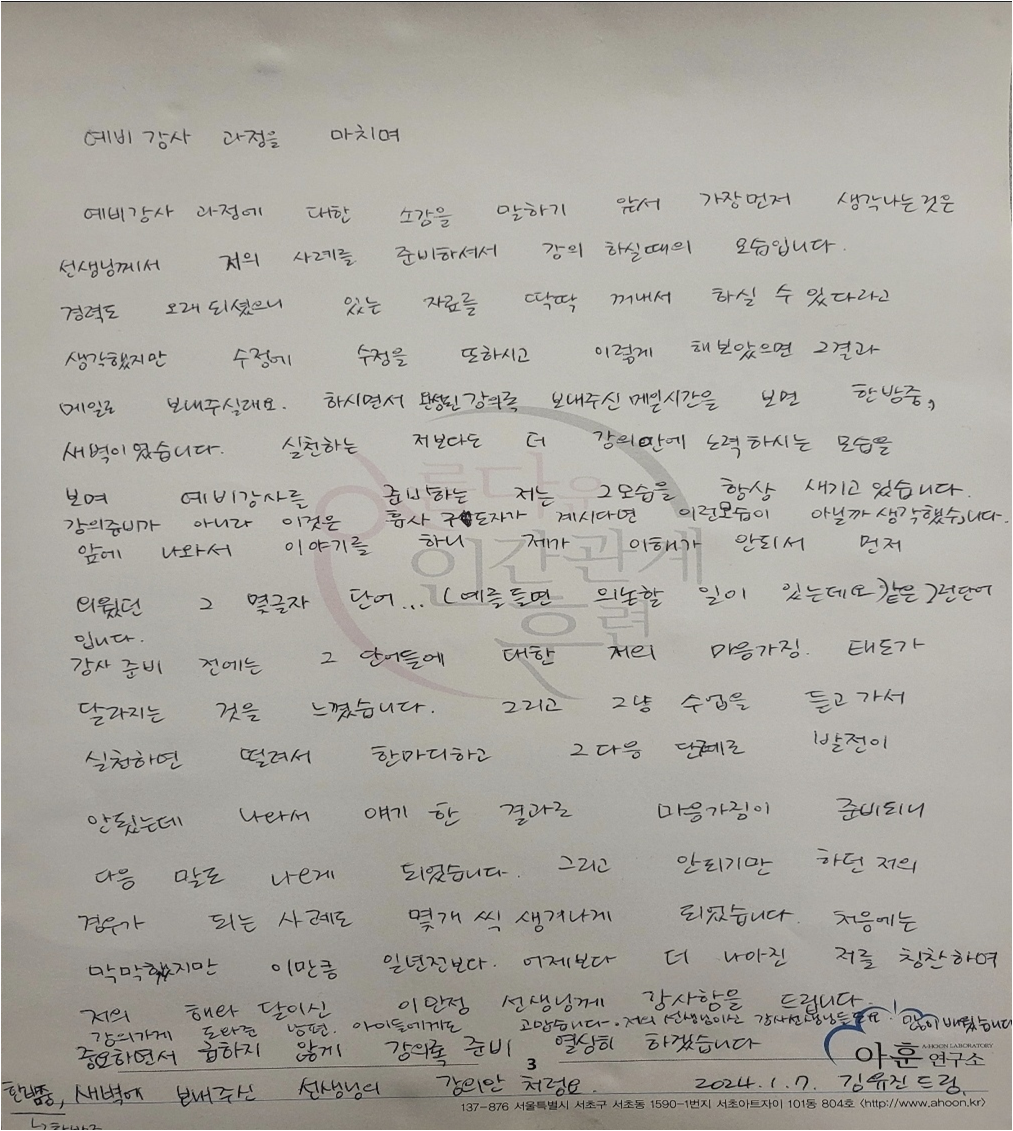 예비 강사 과정을 마치며
예비강사 과정에 대한 소감을 말하기 앞서 가장먼저 생각나는것은
선생님께서 저의 사례를 준비하셔서 강의 하실때의 모습입니다.
경력도 오래되셨으니 있는 자료를 딱딱 꺼내서 하실 수 있다라고
생각했지만 수정에 수정을 또하시고 이렇게 해보았으면 그결과
메일로 보내주실래요. 하시면서 완성된 강의록 보내주신 메일시간을 보면 한밤중,
새벽이었습니다. 실천하는 저보다도 더 강의안에 노력하시는 모습을
보며 예비강사를 준비하는 저는 그모습을 항상 새기고 있습니다.
강의준비가 아니라 이것은 흡사 구도자가 계시다면 이런모습이 아닐까 생각했습니다.
앞에 나와서 이야기를 하니 제가 이해가 안되서 먼저
외웠던 그 몇글자 단어... (예를들면 의논할 일이 있는데요 같은) 그런단어
입니다.
강사 준비 전에는 그 단어들에 대한 저의 마음가짐. 태도가
달라지는 것을 느꼈습니다. 그리고 그냥 수업을 듣고 가서
실천하면 떨려서 한마디하고 그다음 단계로 발전이
안됬는데 나와서 얘기 한 결과로 마음가짐이 준비되니
다음 말도 나오게 되었습니다. 그리고 안되기만 하던 저의
경우가 되는 사례도 몇개 씩 생겨나게 되었습니다. 처음에는
막막했지만 이만큼 일년전보다. 어제보다 더 나아진 저를 칭찬하며
저의 해와 달이신 이민정 선생님께 감사함을 드립니다.
강의가게 도와준 남편. 아이들에게도 고맙습니다. 저의 선생님이신 강사선생님들 많이 배웠습니다
중요하면서 급하지 않게 강의록 준비 열심히 하겠습니다
한밤중, 새벽에 보내주신 선생님의 강의안 처럼요. 2024.1.7. 김유진 드림.
아름다운
인간관계
훈련
3
A-HOON LABORATORY
아훈 연구소
137-876 서울특별시 서초구 서초동 1590-1번지 서초아트자이 101동 804호 <http://www.ahoon.kr>